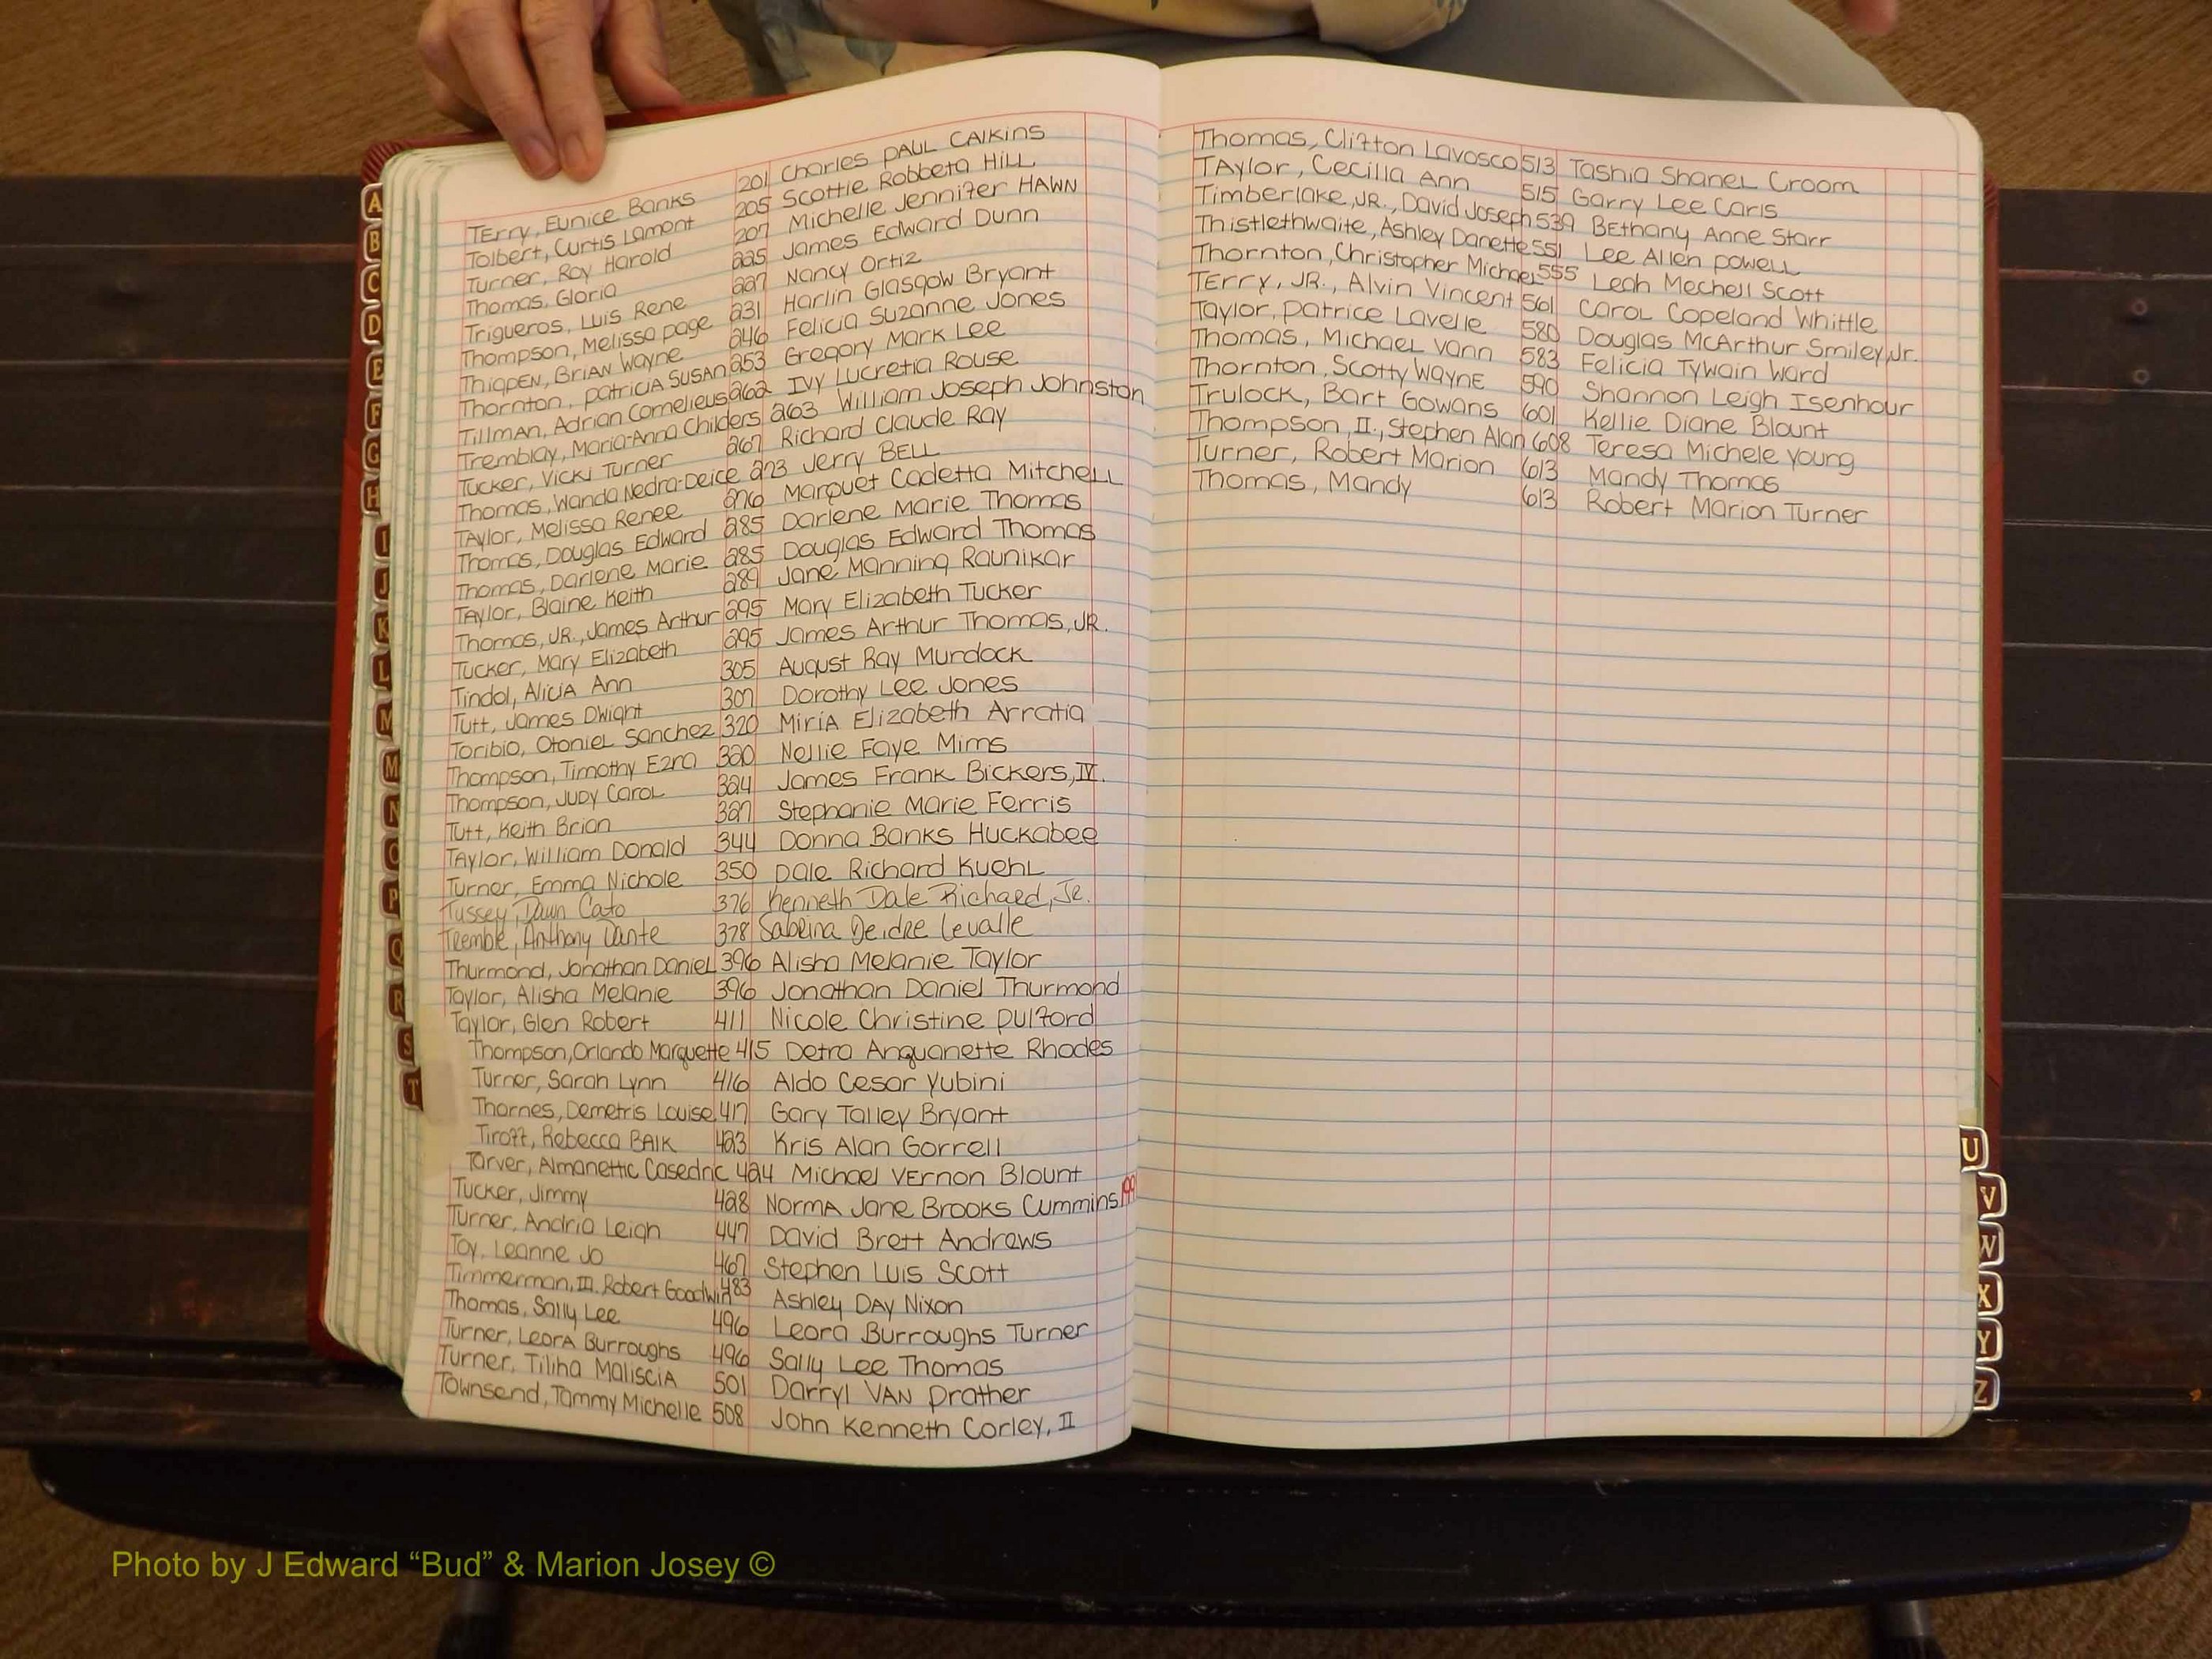 A
B
C
D
E
F
G
H
I
J
K
L
M
M
N
O
P
Q
R
S
T
Terry, Eunice Banks 201 Charles Paul Calkins
Tolbert, Curtis Lamont 205 Scottie Robbeta Hill
Turner, Roy Harold 207 Michelle Jennifer Hawn
Thomas, Gloria 225 James Edward Dunn
Trigueros, Luis Rene 227 Nancy Ortiz
Thompson, Melissa Page 231 Harlin Glasgow Bryant
Thigpen, Brian Wayne 246 Felicia Suzanne Jones
Thornton, Patricia Susan 253 Gregory Mark Lee
Tillman, Adrian Cornelieus 262 Ivy Lucretia Rouse
Tremblay, Maria-Anna Childers 263 William Joseph Johnston
Tucker, Vicki Turner 267 Richard Claude Ray
Thomas, Wanda Nedra-Deice 273 Jerry Bell
Taylor, Melissa Renee 276 Marquet Cadetta Mitchell
Thomas, Douglas Edward 285 Darlene Marie Thomas
Thomas, Darlene Marie 285 Douglas Edward Thomas
Taylor, Blaine Keith 289 Jane Manning Raunikar
Thomas, JR., James Arthur 295 Mary Elizabeth Tucker
Tucker, Mary Elizabeth 295 James Arthur Thomas, JR.
Tindol, Alicia Ann 305 August Ray Murdock
Tutt, James Dwight 307 Dorothy Lee Jones
Toribio, Otoniel Sanchez 320 Miria Elizabeth Arratia
Thompson, Timothy Ezra 320 Nellie Faye Mims
Thompson, Judy Carol 324 James Frank Bickers, IV.
Tutt, Keith Brian 327 Stephanie Marie Ferris
Taylor, William Donald 344 Donna Banks Huckabee
Turner, Emma Nichole 350 Dale Richard Kuehl
Tussey, Dawn Cato 376 Kenneth Dale Richard, Jr.
Tremble, Anthony Dante 378 Sabrina Deidre Levalle
Thurmond, Jonathan Daniel 396 Alisha Melanie Taylor
Taylor, Alisha Melanie 396 Jonathan Daniel Thurmond
Taylor, Glen Robert 411 Nicole Christine Pulford
Thompson, Orlando Marquette 415 Detra Anquanette Rhodes
Turner, Sarah Lynn 416 Aldo Cesar Yubini
Thornes, Demetris Louise 417 Gary Talley Bryant
Tiroff, Rebecca Balk 423 Kris Alan Gorrell
Tarver, Almanettic Casedric 424 Michael Vernon Blount
Tucker, Jimmy 428 Norma Jane Brooks Cummins 199
Turner, Andria Leigh 447 David Brett Andrews
Toy, Leanne Jo 467 Stephen Luis Scott
Timmerman, III. Robert Goodwin 483 Ashley Day Nixon
Thomas, Sally Lee 496 Leora Burroughs Turner
Turner, Leora Burroughs 496 Sally Lee Thomas
Turner, Tiliha Maliscia 501 Darryl Van Prather
Townsend, Tammy Michelle 508 John Kenneth Corley, II
Thomas, Clifton Lavosco 513 Tashia Shanel Croom
Taylor, Cecilla Ann 515 Garry Lee Caris
Timberlake, JR., David Joseph 539 Bethany Anne Starr
Thistlethwaite, Ashley Danette 551 Lee Allen Powell
Thornton, Christopher Michael 555 Leah Mechell Scott
Terry, JR., Alvin Vincent 561 Carol Copeland Whittle
Taylor, Patrice Lavelle 580 Douglas McArthur Smiley, Jr.
Thomas, Michael Vann 583 Felicia Tywain Ward
Thornton, Scotty Wayne 590 Shannon Leigh Isenhour
Trulock, Bart Gowans 601 Kellie Diane Blount
Thompson, II., Stephen Alan 608 Teresa Michele Young
Turner, Robert Marion 613 Mandy Thomas
Thomas, Mandy 613 Robert Marion Turner
U
V
W
X
Y
Z
Photo by J Edward “Bud” & Marion Josey ©